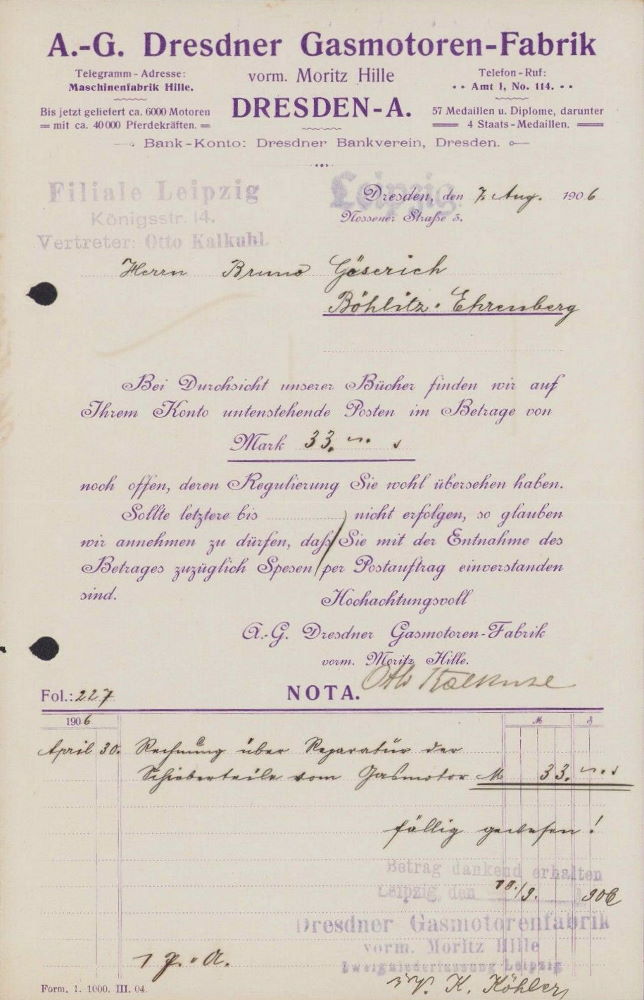 A.-G. Dresdner Gasmotoren-Fabrik
Telegramm-Adresse:
Maschinenfabrik Hille.
vorm. Moritz Hille
Telefon-Ruf:
Amt 1, No. 114.
Bis jetzt geliefert ca. 6000 Motoren
mit ca. 40000 Pferdekräften.
DRESDEN-A.
57 Medaillen u. Diplome, darunter
4 Staats-Medaillen.
Bank-Konto: Dresdner Bankverein, Dresden.
Filiale Leipzig
Königsstr. 14.
Vertreter: Otto Kalkuhl.
Leipzig
Dresden, den 7. Aug. 1906
Nossener Straße 5.
Herrn Bruno Göserich
Böhlitz-Ehrenberg
Bei Durchsicht unserer Bücher finden wir auf
Ihrem Konto untenstehende Posten im Betrage von
Mark 33.
noch offen, deren Regulierung Sie wohl übersehen haben.
Sollte letztere bis nicht erfolgen, so glauben
wir annehmen zu dürfen, daß Sie mit der Entnahme des
Betrages zuzüglich Spesen per Postauftrag einverstanden
sind.
Hochachtungsvoll
A.-G. Dresdner Gasmotoren-Fabrik
vorm. Moritz Hille.
Otto Kalkuhl
Fol.: 227
NOTA.
1906
M
April 30. Rechnung über Reparatur der
Schieberteile vom Gasmotor M 33.
fällig gewesen!
Betrag dankend erhalten
Leipzig, den 10./9. 1906
Dresdner Gasmotorenfabrik
vorm. Moritz Hille
Zweigniederlassung Leipzig
i.V. K. Köhler
Form. 1. 1000. III. 04.